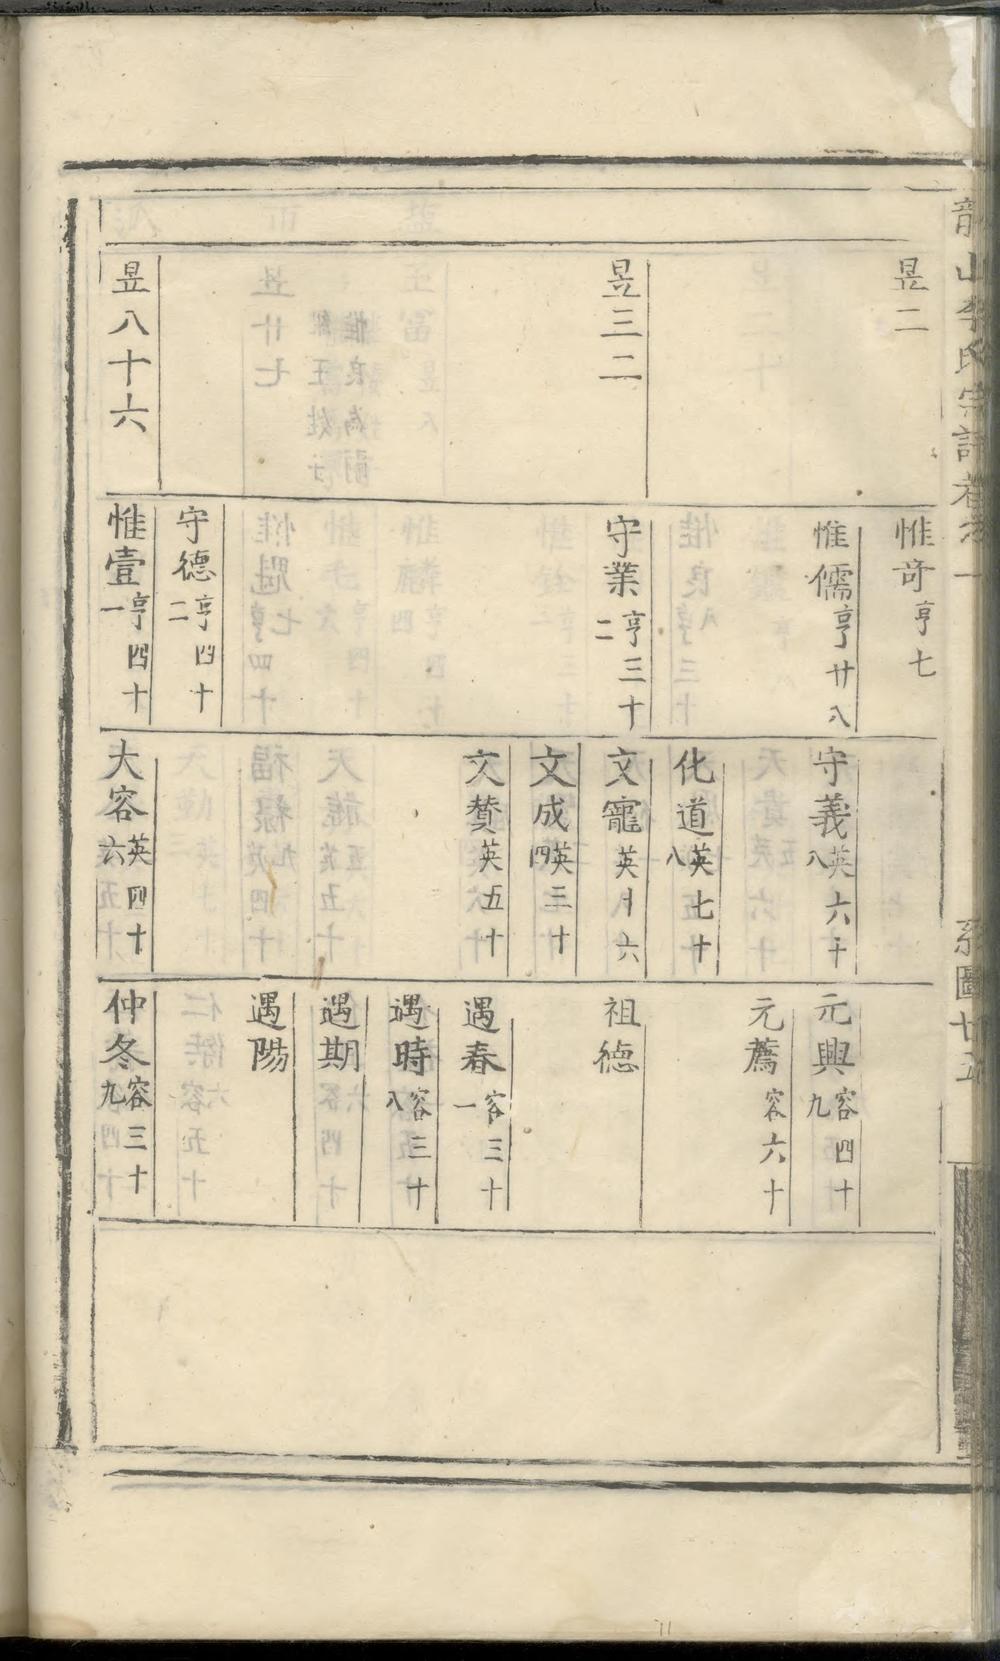 山李氏宗譜卷之一
系圖廿五
昱二
昱三二
昱八十六
惟奇亨七
惟儒亨廿八
守業亨三十二
守德亨四十二
惟壹亨四十一
守義英六十八
化道英七十八
文寵英十六
文成英三十四
文贊英五十
大容英四十六
元興容四十九
元薦容六十
祖德
遇春容三十一
遇時容三十八
遇期
遇陽
仲冬容三十九